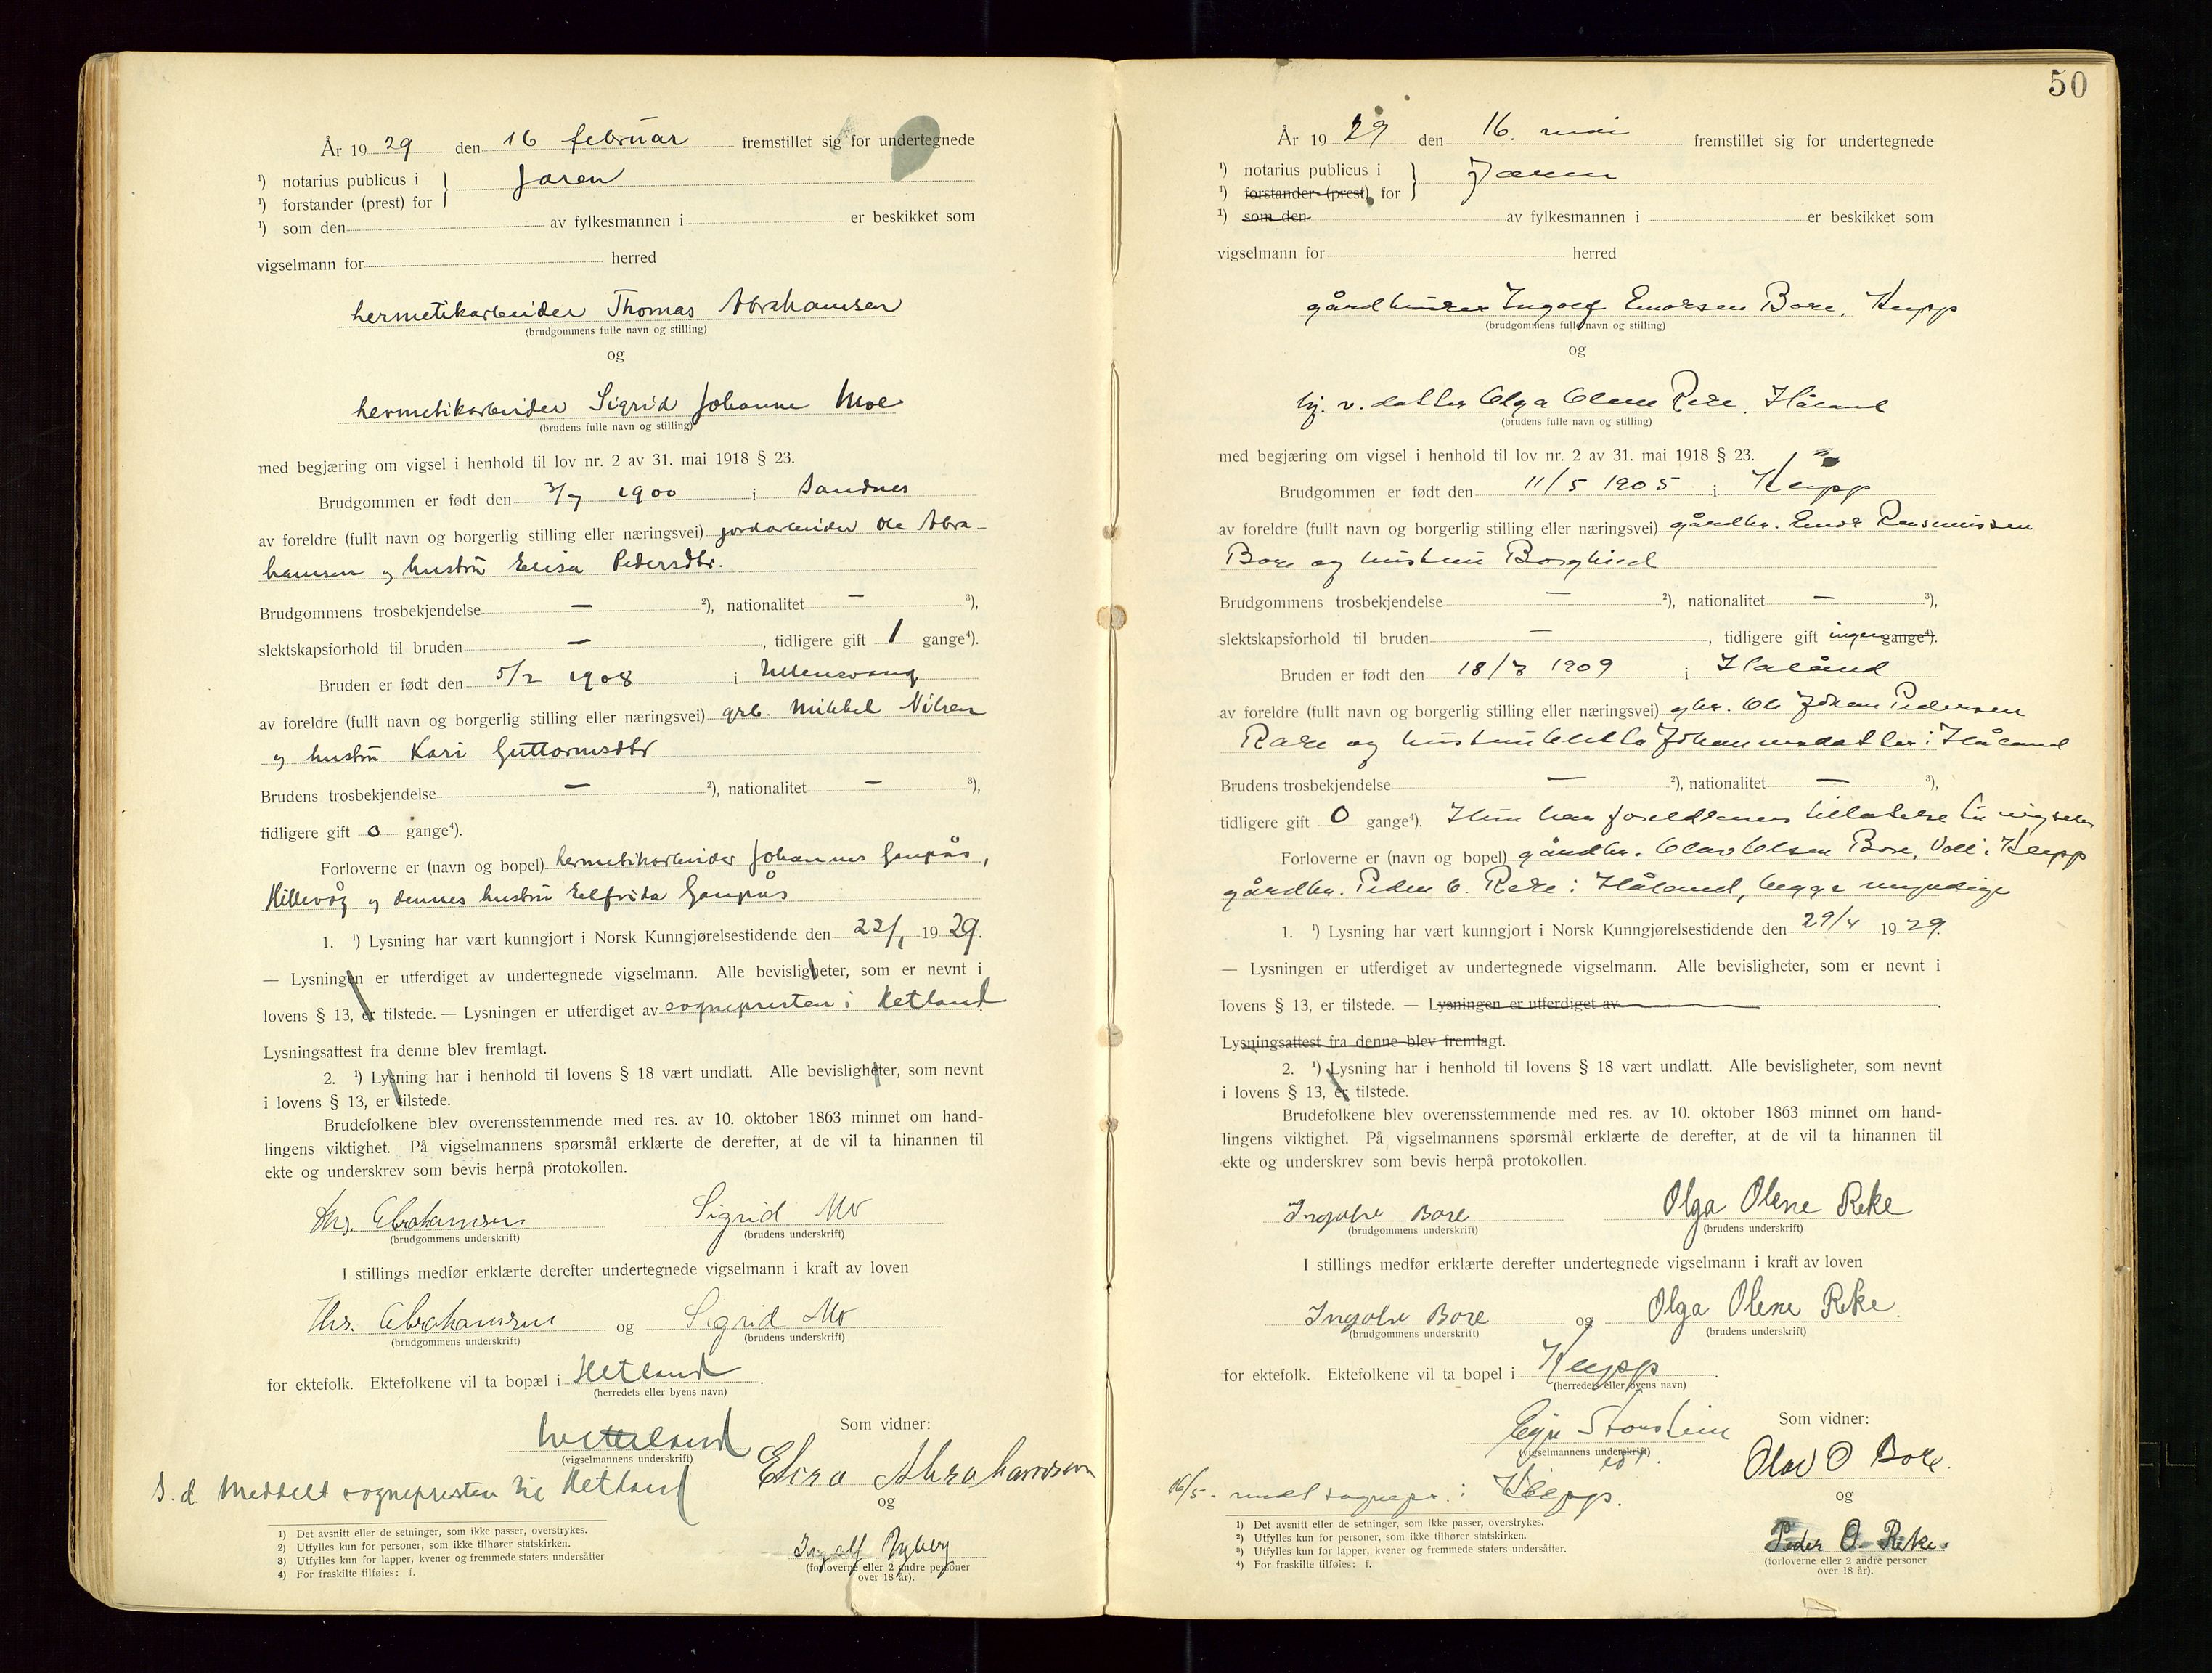 År 19 29 den 16 februar fremstillet sig for undertegnede
¹) notarius publicus i } Jæren
¹) forstander (prest) for
¹) som den av fylkesmannen i er beskikket som
vigselmann for herred
hermetikarbeider Thomas Abrahamsen
(brudgommens fulle navn og stilling)
og
hermetikarbeider Sigrid Johanne Moe
(brudens fulle navn og stilling)
med begjæring om vigsel i henhold til lov nr. 2 av 31. mai 1918 § 23.
Brudgommen er født den 3/7 1900 i Sandnes
av foreldre (fullt navn og borgerlig stilling eller næringsvei) jordarbeider Ole Abra-
hamsen og hustru Elisa Pedersdtr.
Brudgommens trosbekjendelse — ²), nationalitet — ³),
slektskapsforhold til bruden — , tidligere gift 1 gange⁴).
Bruden er født den 5/2 1908 i Ullensvang
av foreldre (fullt navn og borgerlig stilling eller næringsvei) grb. Mikkel Nilsen
og hustru Kari Guttormsdtr
Brudens trosbekjendelse — ²), nationalitet — ³),
tidligere gift 0 gange⁴).
Forloverne er (navn og bopel) hermetikarbeider Johannes Gaupås,
Hillevåg og dennes hustru Elfrida Gaupås
1. ¹) Lysning har vært kunngjort i Norsk Kunngjørelsestidende den 22/1 19 29.
— Lysningen er utferdiget av undertegnede vigselmann. Alle bevisligheter, som er nevnt i
lovens § 13, er tilstede. — Lysningen er utferdiget av sognepresten i Hetland
Lysningsattest fra denne blev fremlagt.
2. ¹) Lysning har i henhold til lovens § 18 vært undlatt. Alle bevisligheter, som nevnt
i lovens § 13, er tilstede.
Brudefolkene blev overensstemmende med res. av 10. oktober 1863 minnet om hand-
lingens viktighet. På vigselmannens spørsmål erklærte de derefter, at de vil ta hinannen til
ekte og underskrev som bevis herpå protokollen.
Ths. Abrahamsen Sigrid Mo
(brudgommens underskrift) (brudens underskrift)
I stillings medfør erklærte derefter undertegnede vigselmann i kraft av loven
Ths. Abrahamsen og Sigrid Mo
(brudgommens underskrift) (brudens underskrift)
for ektefolk. Ektefolkene vil ta bopæl i Hetland.
(herredets eller byens navn)
Som vidner:
(vigselmannens underskrift) Elisa Abrahamsen
S. d. Meddelt sognepresten til Hetland
og
Ingolf
(forloverne eller 2 andre personer
over 18 år).
1) Det avsnitt eller de setninger, som ikke passer, overstrykes.
2) Utfylles kun for personer, som ikke tilhører statskirken.
3) Utfylles kun for lapper, kvener og fremmede staters undersåtter
4) For fraskilte tilføies: f.
50
År 19 29 den 16. mai fremstillet sig for undertegnede
¹) notarius publicus i } Jæren
¹) forstander (prest) for
¹) som den av fylkesmannen i er beskikket som
vigselmann for herred
gårdbruker Ingolf Enoksen Bore, Klepp
(brudgommens fulle navn og stilling)
og
hj. v. datter Olga Olene Reke, Håland
(brudens fulle navn og stilling)
med begjæring om vigsel i henhold til lov nr. 2 av 31. mai 1918 § 23.
Brudgommen er født den 11/5 1905 i Klepp
av foreldre (fullt navn og borgerlig stilling eller næringsvei) gårdbr. Enok Rasmussen
Bore og hustru Borghild
Brudgommens trosbekjendelse — ²), nationalitet — ³),
slektskapsforhold til bruden — , tidligere gift ingen gange⁴).
Bruden er født den 18/3 1909 i Håland
av foreldre (fullt navn og borgerlig stilling eller næringsvei) gbr. Ole Johan Pedersen
Reke og hustru Johannesdatter i Håland
Brudens trosbekjendelse — ²), nationalitet — ³),
tidligere gift 0 gange⁴). Hun har foreldrenes tillatelse til vigselen
Forloverne er (navn og bopel) gårdbr. Olav Olsen Bore, Voll i Klepp
gårdbr. Peder O. Reke i Håland, begge myndige
1. ¹) Lysning har vært kunngjort i Norsk Kunngjørelsestidende den 29/4 19 29.
— Lysningen er utferdiget av undertegnede vigselmann. Alle bevisligheter, som er nevnt i
lovens § 13, er tilstede. — Lysningen er utferdiget av .
Lysningsattest fra denne blev fremlagt.
2. ¹) Lysning har i henhold til lovens § 18 vært undlatt. Alle bevisligheter, som nevnt
i lovens § 13, er tilstede.
Brudefolkene blev overensstemmende med res. av 10. oktober 1863 minnet om hand-
lingens viktighet. På vigselmannens spørsmål erklærte de derefter, at de vil ta hinannen til
ekte og underskrev som bevis herpå protokollen.
Ingolv Bore Olga Olene Reke
(brudgommens underskrift) (brudens underskrift)
I stillings medfør erklærte derefter undertegnede vigselmann i kraft av loven
Ingolv Bore og Olga Olene Reke.
(brudgommens underskrift) (brudens underskrift)
for ektefolk. Ektefolkene vil ta bopel i Klepp.
(herredets eller byens navn)
Som vidner:
(vigselmannens underskrift)
Olav O Bore.
16/5. sognepr. i Klepp.
og
Peder O. Reke.
(forloverne eller 2 andre personer
over 18 år).
1) Det avsnitt eller de setninger, som ikke passer, overstrykes.
2) Utfylles kun for personer, som ikke tilhører statskirken.
3) Utfylles kun for lapper, kvener og fremmede staters undersåtter.
4) For fraskilte tilføies: f.